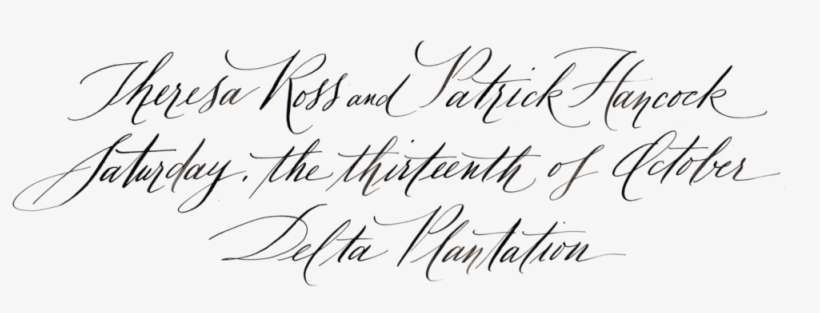 Theresa Ross and Patrick Hancock
Saturday, the thirteenth of October
Delta Plantation